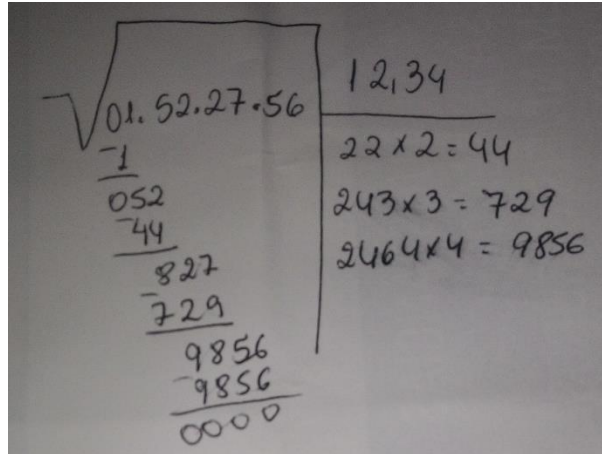 √01.52.27.56
-1
052
-44
827
-729
9856
-9856
0000
12,34
22×2=44
243×3=729
2464×4=9856